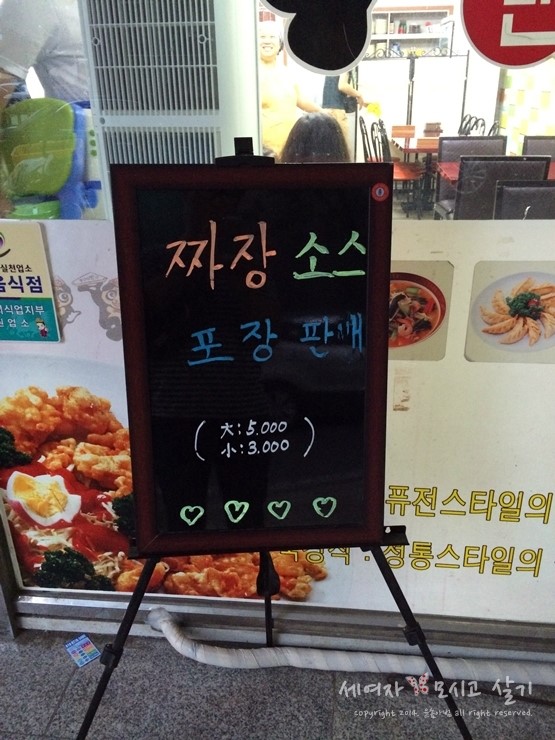 짜장 소스
포장 판매
( 大: 5.000
小: 3.000 )
실천업소
음식점
업소
퓨전스타일의
정통스타일의
세여자 모시고 살기
copyright 2014. all right reserved.